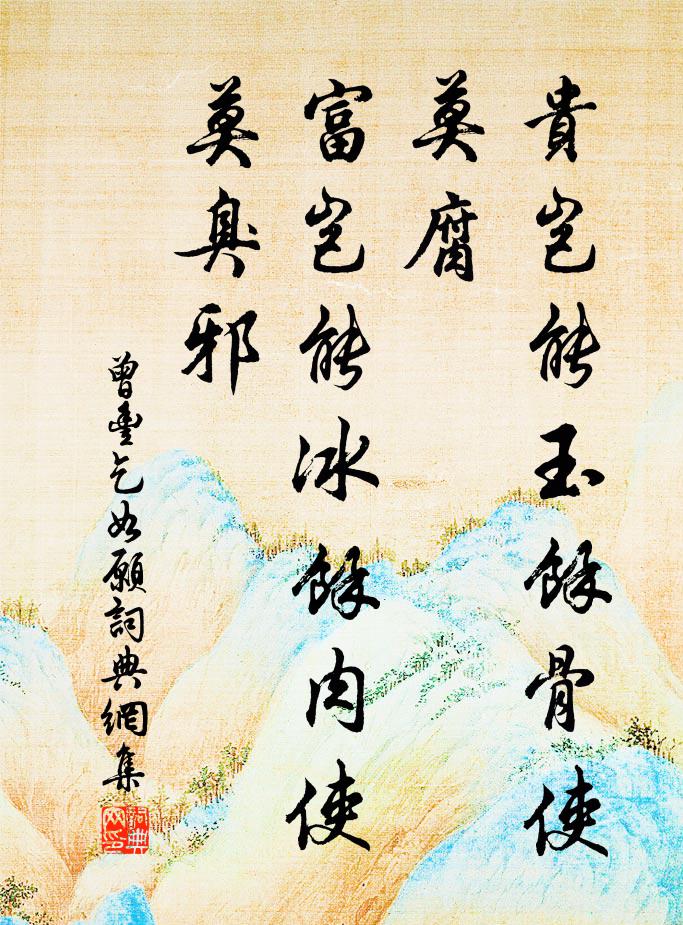 貴豈能玉餘骨使
莫腐
富豈能冰餘肉使
莫臭邪
曾豐乞如願詞典網集
詞典网印